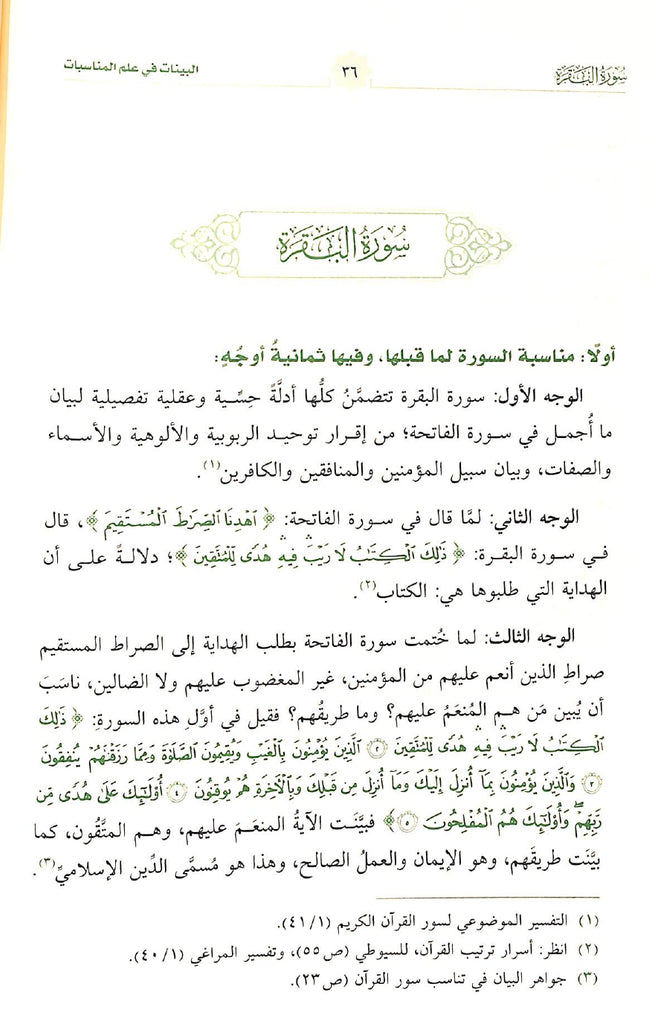 سُورَةُ البَقَرَةِ
٣٦
البينات في علم المناسبات
سُورَةُ البَقَرَةِ
أولًا: مناسبة السورة لما قبلها، وفيها ثمانيةُ أوجُهٍ:
الوجه الأول: سورة البقرة تتضمَّنُ كلُّها أدلَّةً حِسِّية وعقلية تفصيلية لبيان
ما أُجمل في سورة الفاتحة؛ من إقرار توحيد الربوبية والألوهية والأسماء
والصفات، وبيان سبيل المؤمنين والمنافقين والكافرين(١).
الوجه الثاني: لمَّا قال في سورة الفاتحة: ﴿ٱهۡدِنَا ٱلصِّرَٰطَ ٱلۡمُسۡتَقِيمَ﴾، قال
في سورة البقرة: ﴿ذَٰلِكَ ٱلۡكِتَٰبُ لَا رَيۡبَۛ فِيهِۛ هُدٗى لِّلۡمُتَّقِينَ﴾؛ دلالةً على أن
الهداية التي طلبوها هي: الكتاب(٢).
الوجه الثالث: لما خُتمت سورة الفاتحة بطلب الهداية إلى الصراط المستقيم
صراطِ الذين أنعم عليهم من المؤمنين، غير المغضوب عليهم ولا الضالين، ناسَبَ
أن يُبين مَن هم المُنعَمُ عليهم؟ وما طريقُهم؟ فقيل في أوَّلِ هذه السورةِ: ﴿ذَٰلِكَ
ٱلۡكِتَٰبُ لَا رَيۡبَۛ فِيهِۛ هُدٗى لِّلۡمُتَّقِينَ ٢ ٱلَّذِينَ يُؤۡمِنُونَ بِٱلۡغَيۡبِ وَيُقِيمُونَ ٱلصَّلَوٰةَ وَمِمَّا رَزَقۡنَٰهُمۡ يُنفِقُونَ
٣ وَٱلَّذِينَ يُؤۡمِنُونَ بِمَآ أُنزِلَ إِلَيۡكَ وَمَآ أُنزِلَ مِن قَبۡلِكَ وَبِٱلۡأٓخِرَةِ هُمۡ يُوقِنُونَ ٤ أُوْلَٰٓئِكَ عَلَىٰ هُدٗى مِّن
رَّبِّهِمۡۖ وَأُوْلَٰٓئِكَ هُمُ ٱلۡمُفۡلِحُونَ ٥﴾ فبيَّنَت الآيةُ المنعَمَ عليهم، وهم المتَّقون، كما
بيَّنَت طريقَهم، وهو الإيمان والعملُ الصالح، وهذا هو مُسمَّى الدِّين الإسلاميِّ(٣).
(١) التفسير الموضوعي لسور القرآن الكريم (٤١/١).
(٢) انظر: أسرار ترتيب القرآن، للسيوطي (ص٥٥)، وتفسير المراغي (٤٠/١).
(٣) جواهر البيان في تناسب سور القرآن (ص٢٣).